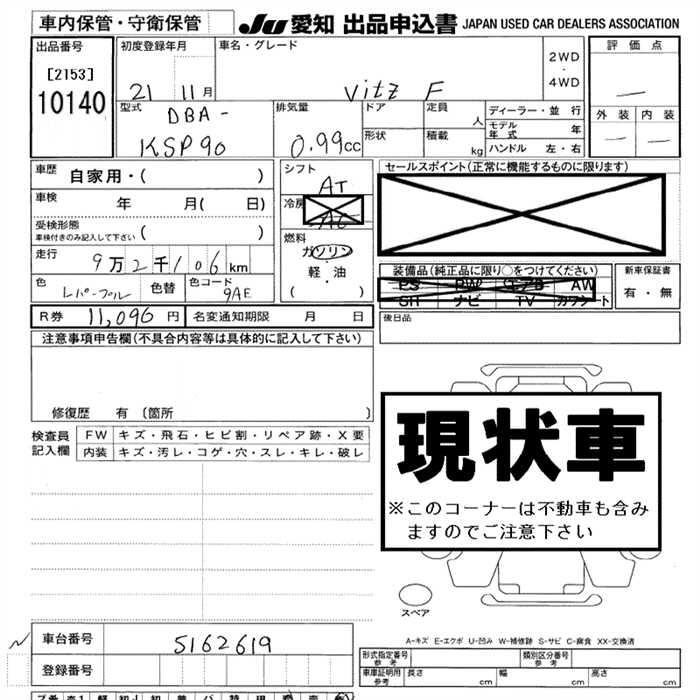 車内保管・守衛保管 JU 愛知 出品申込書 JAPAN USED CAR DEALERS ASSOCIATION
出品番号 初度登録年月 車名・グレード 評価点
[2153]
10140
21 11月 Vitz F 2WD・4WD —
型式 排気量 ドア 定員 人 ディーラー・並行 外装 内装
DBA-
KSP90 0.99cc 形状 積載 kg モデル年式 年 — —
ハンドル 左・右
車歴 自家用・( ) シフト AT セールスポイント(正常に機能するものに限ります)
車検 年 月( 日) 冷房 AC
受検形態
車検付きのみ記入して下さい ( ) 燃料 ガソリン・軽・油 ( )
走行 9万2千106km
色 レパープル 色替 色コード 9AE
装備品(純正品に限り○をつけてください) 新車保証書
PS PW エアB AW 有・無
SH ナビ TV カワシート
R券 11,096円 名変通知期限 月 日 後日品
注意事項申告欄(不具合内容等は具体的に記入して下さい)
修復歴 有 〔箇所 〕
検査員記入欄 FW キズ・飛石・ヒビ割・リペア跡・X要
内装 キズ・汚レ・コゲ・穴・スレ・キレ・破レ
現状車
※このコーナーは不動車も含み
ますのでご注意下さい
スペア
A-キズ E-エクボ U-凹み W-補修跡 S-サビ C-腐食 XX-交換済
車台番号 5162619
登録番号
形式指定番号 参考 類別区分番号 参考
車庫証明用 参考 長さ cm 幅 cm 高さ cm